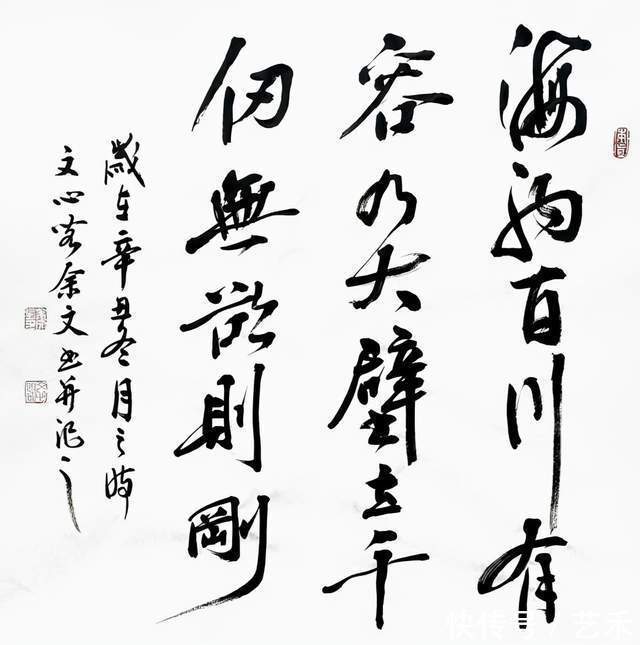 海納百川有
容乃大壁立千
仞無欲則剛
歲在辛丑冬月之時
文心齋余文書并記之
快传号/艺禾